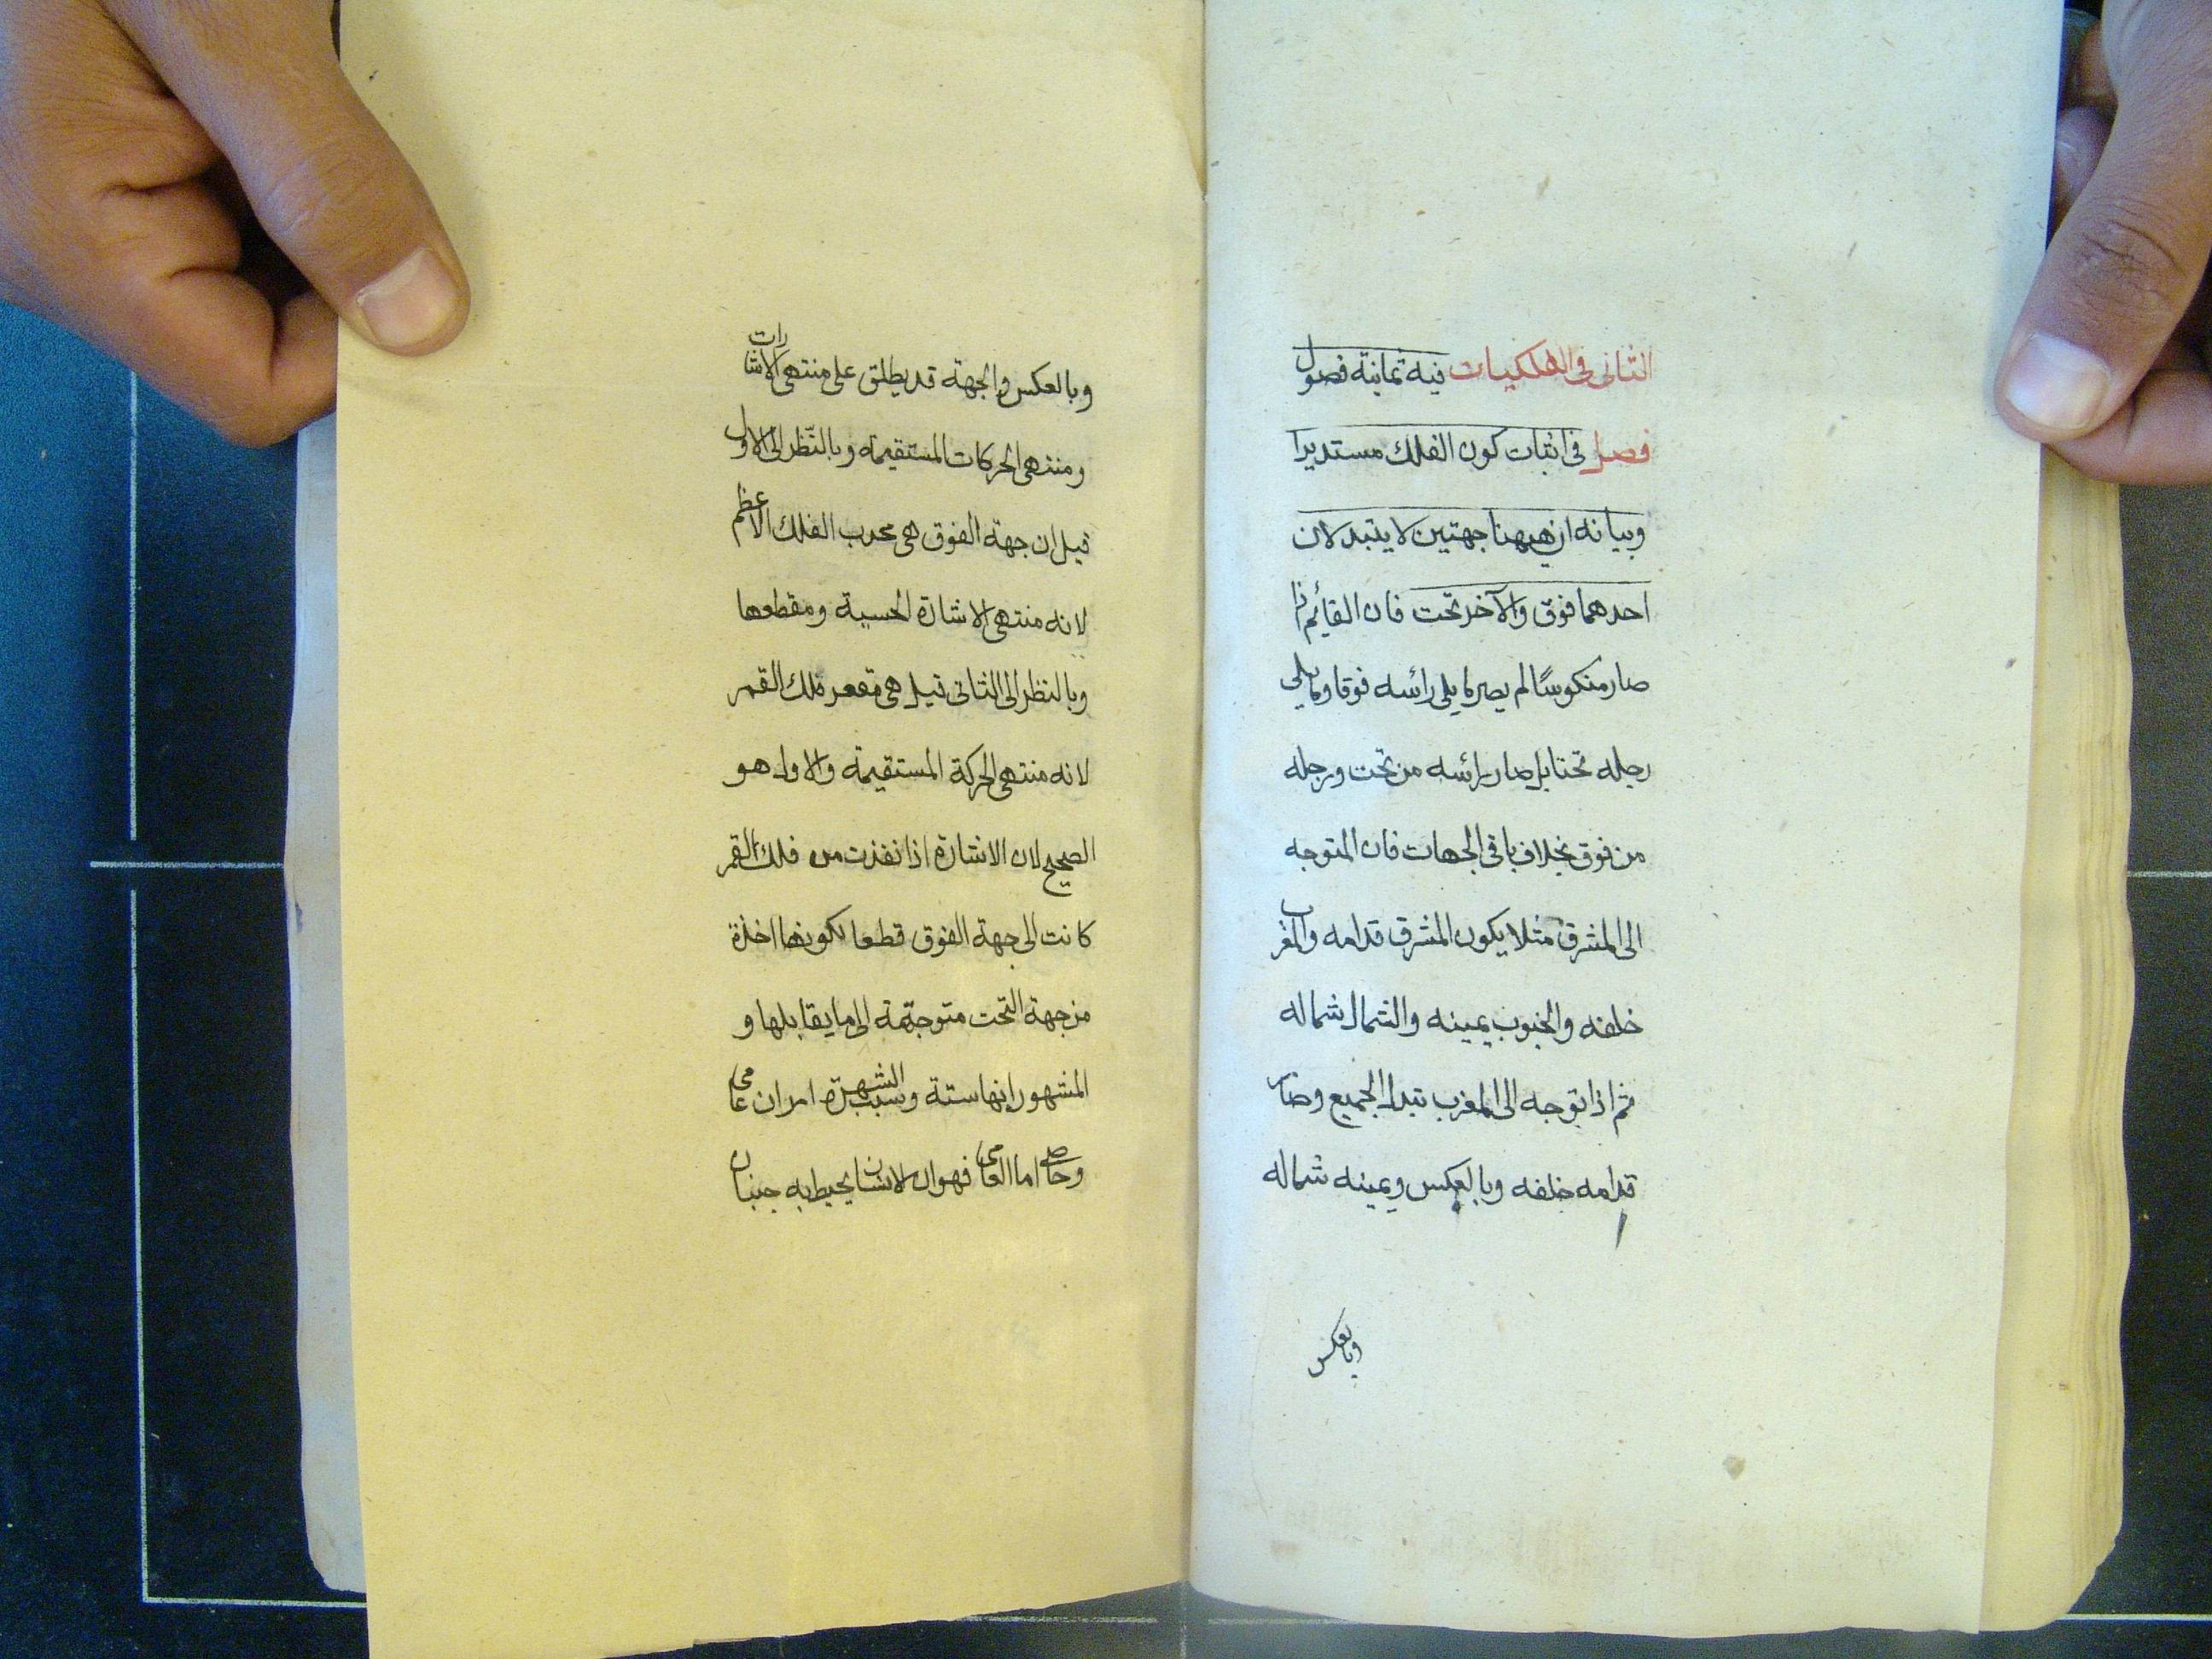 الثانى فى الفلكيات فيه ثمانية فصول
فصل فى اثبات كون الفلك مستديرا
وبيانه ان ههنا جهتين لا يتبدلان
احدهما فوق والآخر تحت فان القائم اذا
صار منكوسًا لم يصر ما يلى رائسه فوقا وما يلى
رجله تحتا بل صار رائسه من تحت ورجله
من فوق بخلاف باقى الجهات فان المتوجه
الى المشرق مثلا يكون المشرق قدامه والمغرب
خلفه والجنوب يمينه والشمال شماله
ثم اذا توجه الى المغرب تبدل الجميع وصار
قدامه خلفه وبالعكس ويمينه شماله
وبالعكس
وبالعكس والجهة قد يطلق على منتهى الاشارات
ومنتهى الحركات المستقيمة وبالنّظر الى الاول
قيل ان جهة الفوق هى محدب الفلك الاعظم
لانه منتهى الاشارة الحسية ومقطعها
وبالنظر الى الثانى قيل هى مقعر فلك القمر
لانه منتهى الحركة المستقيمة والاول هو
الصحيح لان الاشارة اذا نفذت من فلك القمر
كانت الى جهة الفوق قطعا لكونها اخذة
من جهة التحت متوجهة الى ما يقابلها و
المشهور انها ستة وسبب الشهرة امران عامى
وخاصى اما العامى فهو ان الانسان يحيط به جنبان